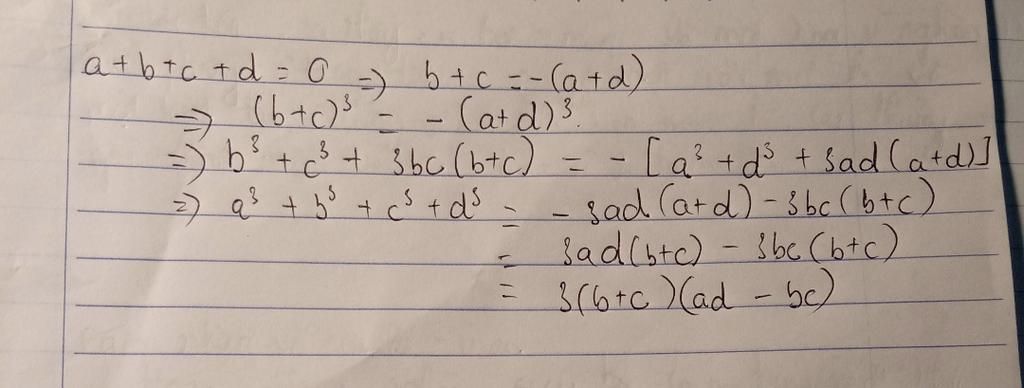 a + b + c + d = 0 => b + c = -(a+d)
=> (b+c)³ = - (a+d)³.
=> b³ + c³ + 3bc(b+c) = - [a³ + d³ + 3ad(a+d)]
=> a³ + b³ + c³ + d³ = - 3ad(a+d) - 3bc(b+c)
= 3ad(b+c) - 3bc(b+c)
= 3(b+c)(ad - bc)